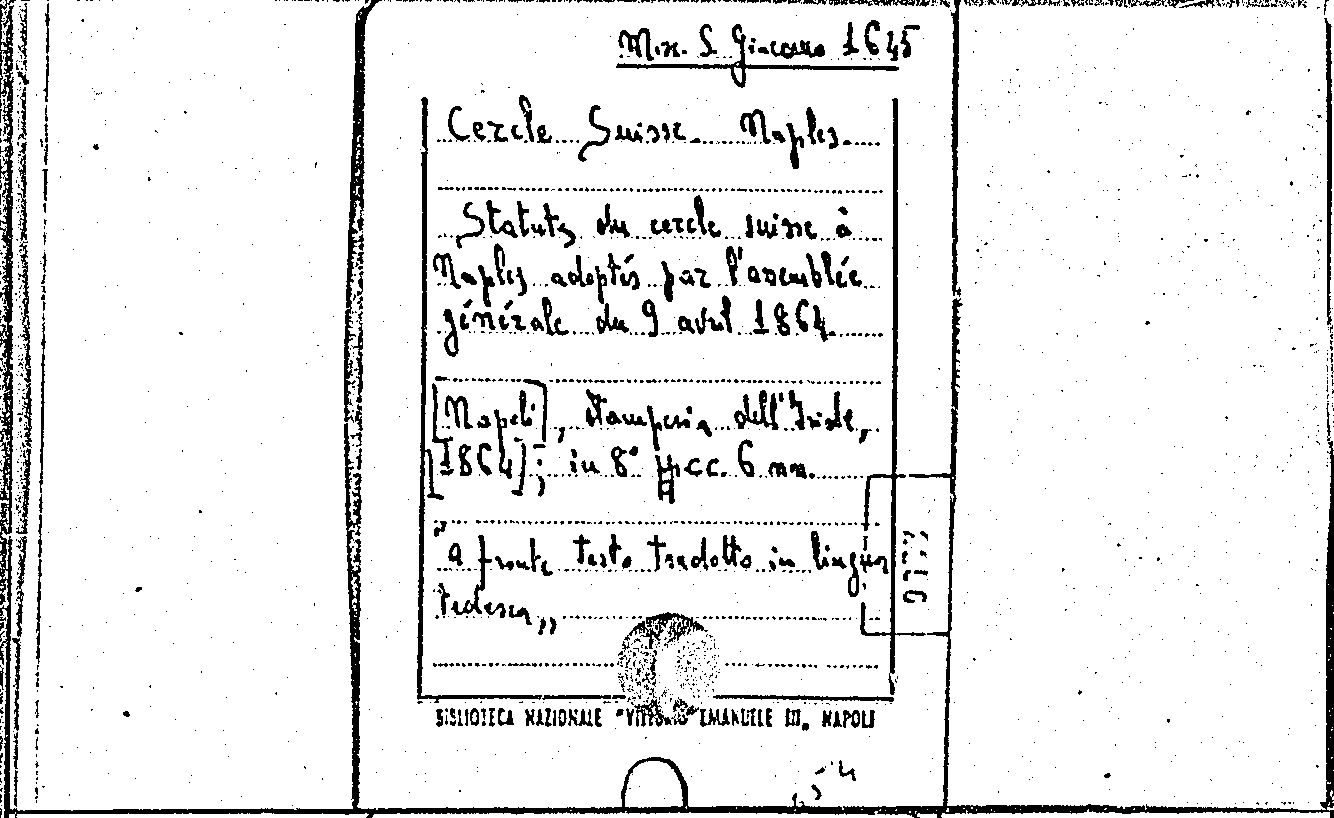 Misc. S. Giacomo 1645
Cercle Suisse. Naples.
Statuts du cercle suisse à
Naples adoptés par l'assemblée
générale du 9 avril 1864.
[Napoli], stamperia dell'Iride,
[1864]; in 8° pp cc. 6 nn.
"a fronte testo tradotto in lingua
tedesca„
BIBLIOTECA NAZIONALE "VITTORIO EMANUELE III„ NAPOLI